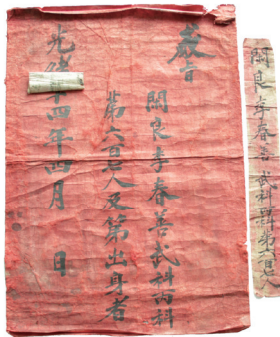 教旨
閑良李春善武科丙科
第六百七人及第出身者
光緖十四年四月 日
閑良李春善 武科丙科第六百七人